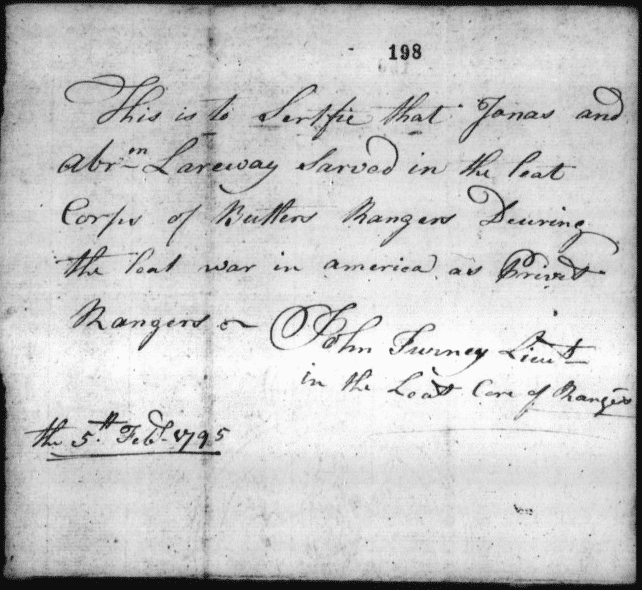 198
This is to Sertfie that Jonas and
Abrm Lareway Sarvod in the leat
Corps of Butlers Rangers Deuring
the leat war in america as Privet
Rangers
John Turney Lieut
in the Leat Core of Rangers
the 5th Feb 1795